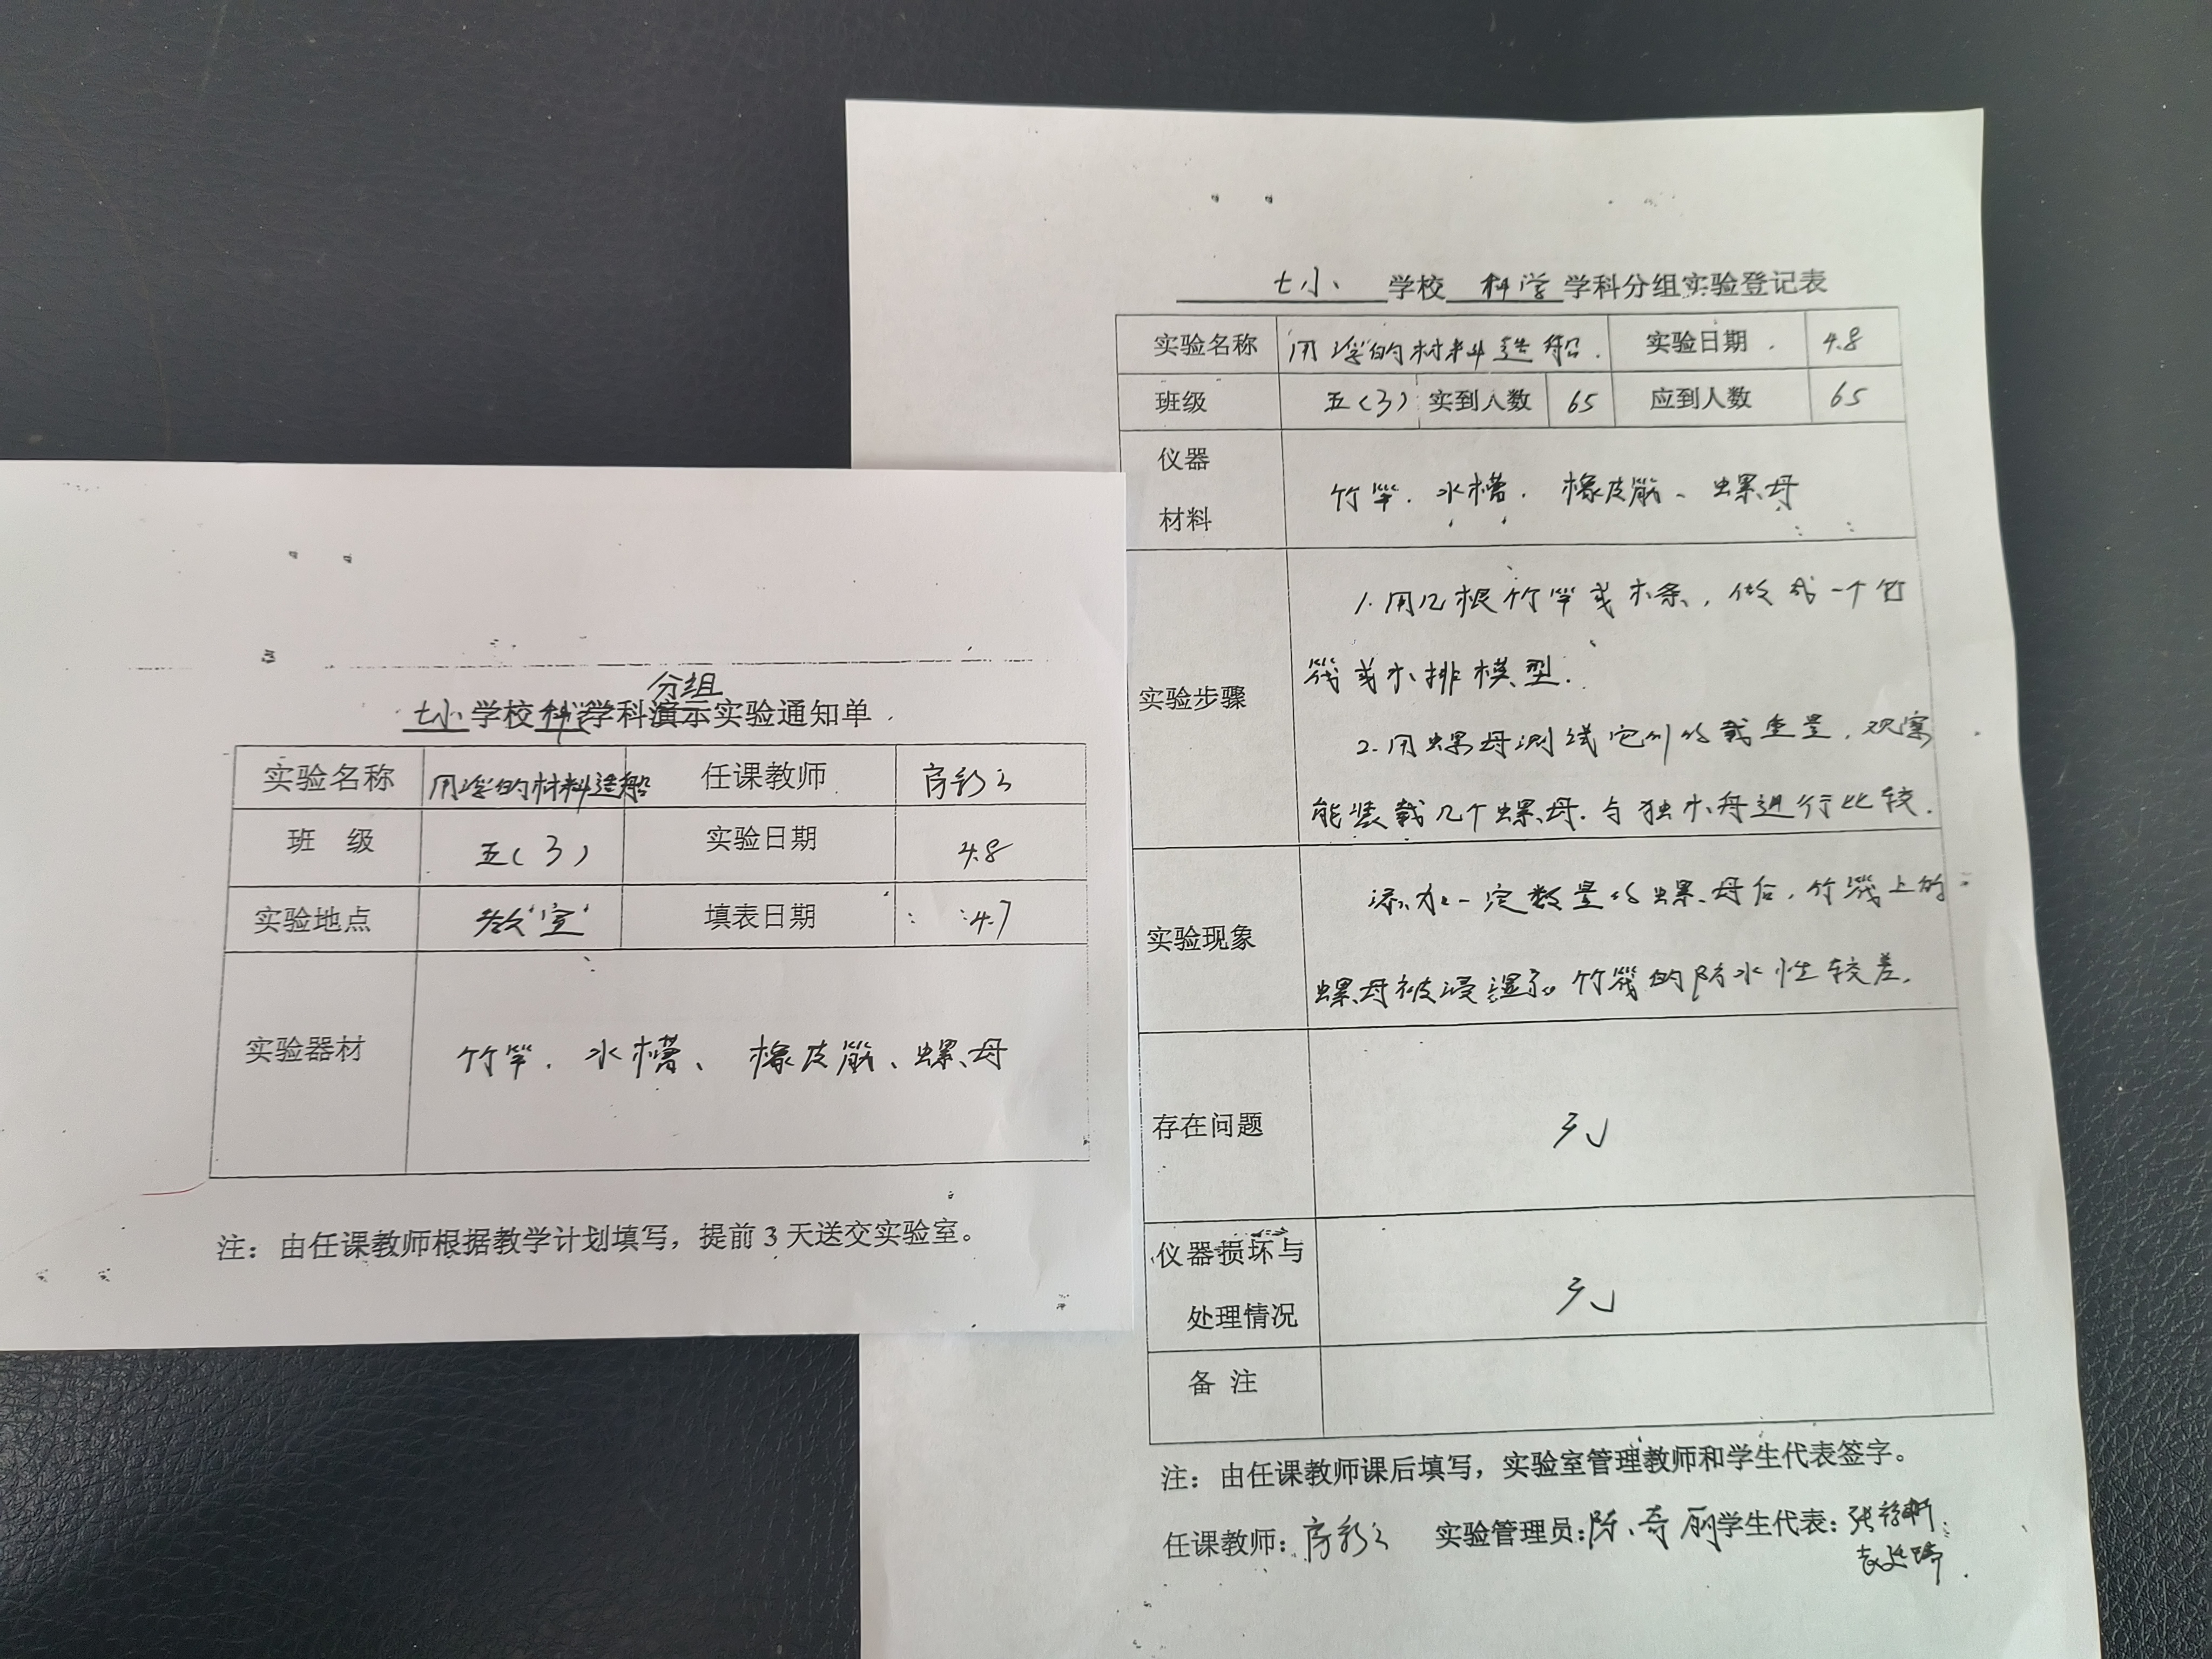 分组
七小学校科学学科演示实验通知单
实验名称 用浮的材料造船 任课教师
班 级 五(3) 实验日期 4.8
实验地点 教室 填表日期 4.7
实验器材 竹竿、水槽、橡皮筋、螺母
注：由任课教师根据教学计划填写，提前3天送交实验室。
七小 学校 科学 学科分组实验登记表
实验名称 用浮的材料造船. 实验日期 4.8
班级 五(3) 实到人数 65 应到人数 65
仪器
材料
竹竿、水槽、橡皮筋、螺母
实验步骤
1.用几根竹竿或木条，做成一个竹
筏或木排模型.
2.用螺母测试它们的载重量，观察
能装载几个螺母.与独木舟进行比较.
实验现象
添加一定数量的螺母后，竹筏上的
螺母被浸湿了。竹筏的防水性较差.
存在问题 无
仪器损坏与
处理情况
无
备 注
注：由任课教师课后填写，实验室管理教师和学生代表签字。
任课教师: 实验管理员:陈奇丽 学生代表: